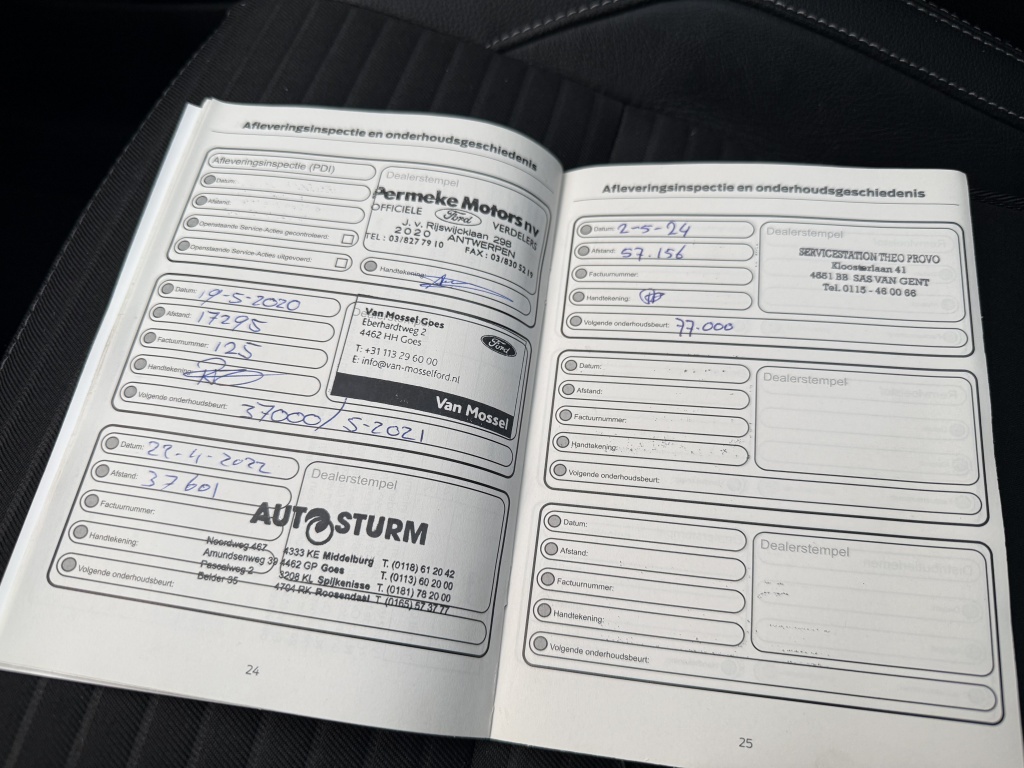 Afleveringsinspectie en onderhoudsgeschiedenis
Afleveringsinspectie (PDI)
Datum:
Afstand:
Openstaande Service-Acties gecontroleerd:
Openstaande Service-Acties uitgevoerd:
Dealerstempel
Permeke Motors nv
OFFICIELE Ford VERDELERS
J. v. Rijswijcklaan 298
2020 ANTWERPEN
TEL : 03/827 79 10 FAX : 03/830 52 19
Handtekening:
Datum: 19-5-2020
Afstand: 17295
Factuurnummer: 125
Handtekening:
Volgende onderhoudsbeurt: 37000/5-2021
Van Mossel Goes
Eberhardtweg 2
4462 HH Goes
Ford
T: +31 113 29 60 00
E: info@van-mosselford.nl
Van Mossel
Datum: 22-4-2022
Afstand: 37601
Factuurnummer:
Handtekening:
Volgende onderhoudsbeurt:
Dealerstempel
AUTOSTURM
Noordweg 467 4333 KE Middelburg T. (0118) 61 20 42
Amundsenweg 39 4462 GP Goes T. (0113) 60 20 00
Pascalweg 2 3208 KL Spijkenisse T. (0181) 78 20 00
Belder 35 4704 RK Roosendaal T. (0165) 57 37 77
24
Afleveringsinspectie en onderhoudsgeschiedenis
Datum: 2-5-24
Afstand: 57.156
Factuurnummer:
Handtekening:
Volgende onderhoudsbeurt: 77.000
Dealerstempel
SERVICESTATION THEO PROVO
Kloosterlaan 41
4551 BB SAS VAN GENT
Tel. 0115 - 46 00 66
Datum:
Afstand:
Factuurnummer:
Handtekening:
Volgende onderhoudsbeurt:
Dealerstempel
Datum:
Afstand:
Factuurnummer:
Handtekening:
Volgende onderhoudsbeurt:
Dealerstempel
25